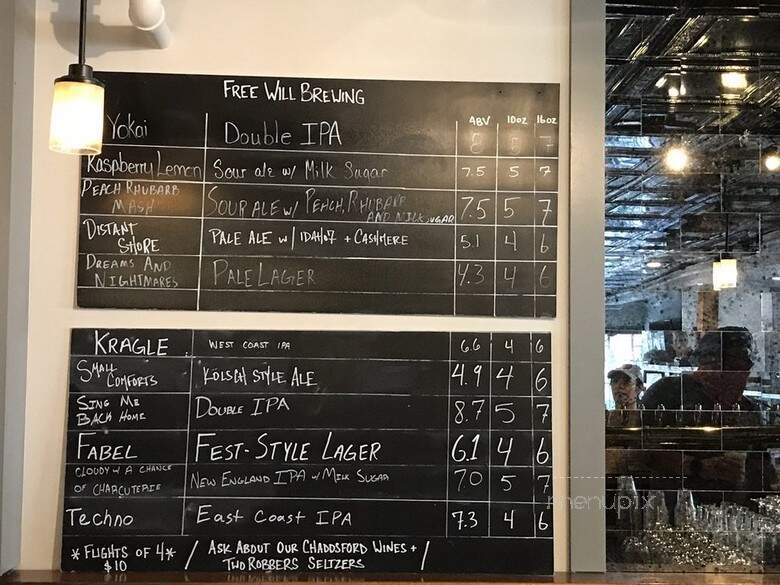 FREE WILL BREWING
ABV 10oz 16oz
Yokai Double IPA 8 5 7
Raspberry Lemon Sour ale w/ Milk Sugar 7.5 5 7
PEACH RHUBARB
MASH
SOUR ALE W/ PEACH, RHUBARB
AND MILK SUGAR
7.5 5 7
DISTANT
SHORE
PALE ALE W/ IDAHO7 + CASHMERE 5.1 4 6
DREAMS AND
NIGHTMARES
PALE LAGER 4.3 4 6
KRAGLE WEST COAST IPA 6.6 4 6
SMALL
COMFORTS
KÖLSCH STYLE ALE 4.9 4 6
SING ME
BACK HOME
DOUBLE IPA 8.7 5 7
FABEL FEST-STYLE LAGER 6.1 4 6
CLOUDY W A CHANCE
OF CHARCUTERIE
NEW ENGLAND IPA W/ MILK SUGAR 7.0 5 7
Techno EAST COAST IPA 7.3 4 6
* FLIGHTS OF 4 *
$10
/ ASK ABOUT OUR CHADDSFORD WINES + /
TWO ROBBERS SELTZERS
menupix